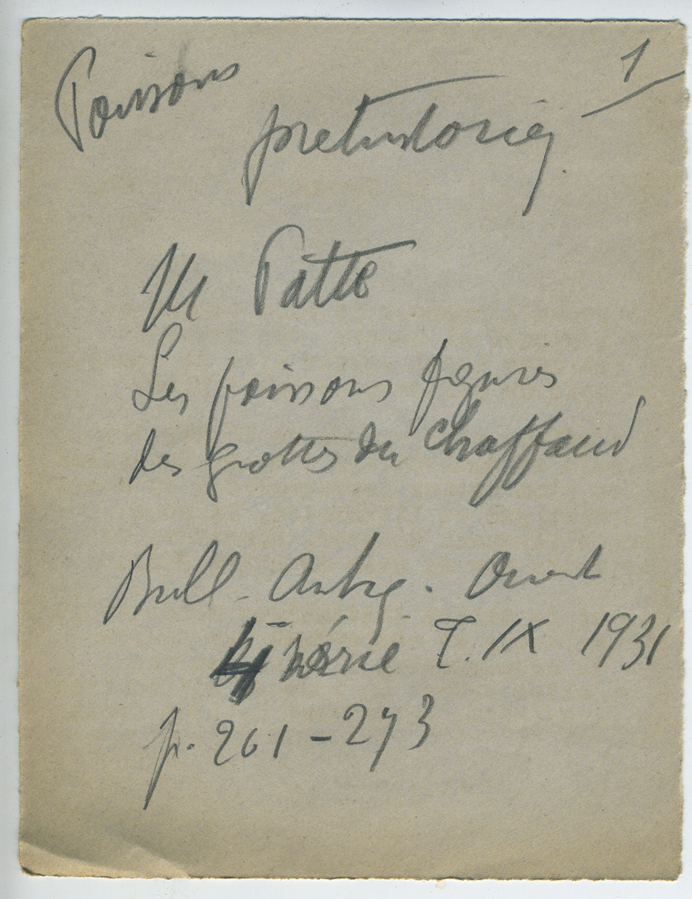 Poissons
1
prehistoriq
M Patte
Les poissons figurés
des grottes du Chaffaud
Bull. Antiq. Ouest
série T. IX 1931
p. 261-273